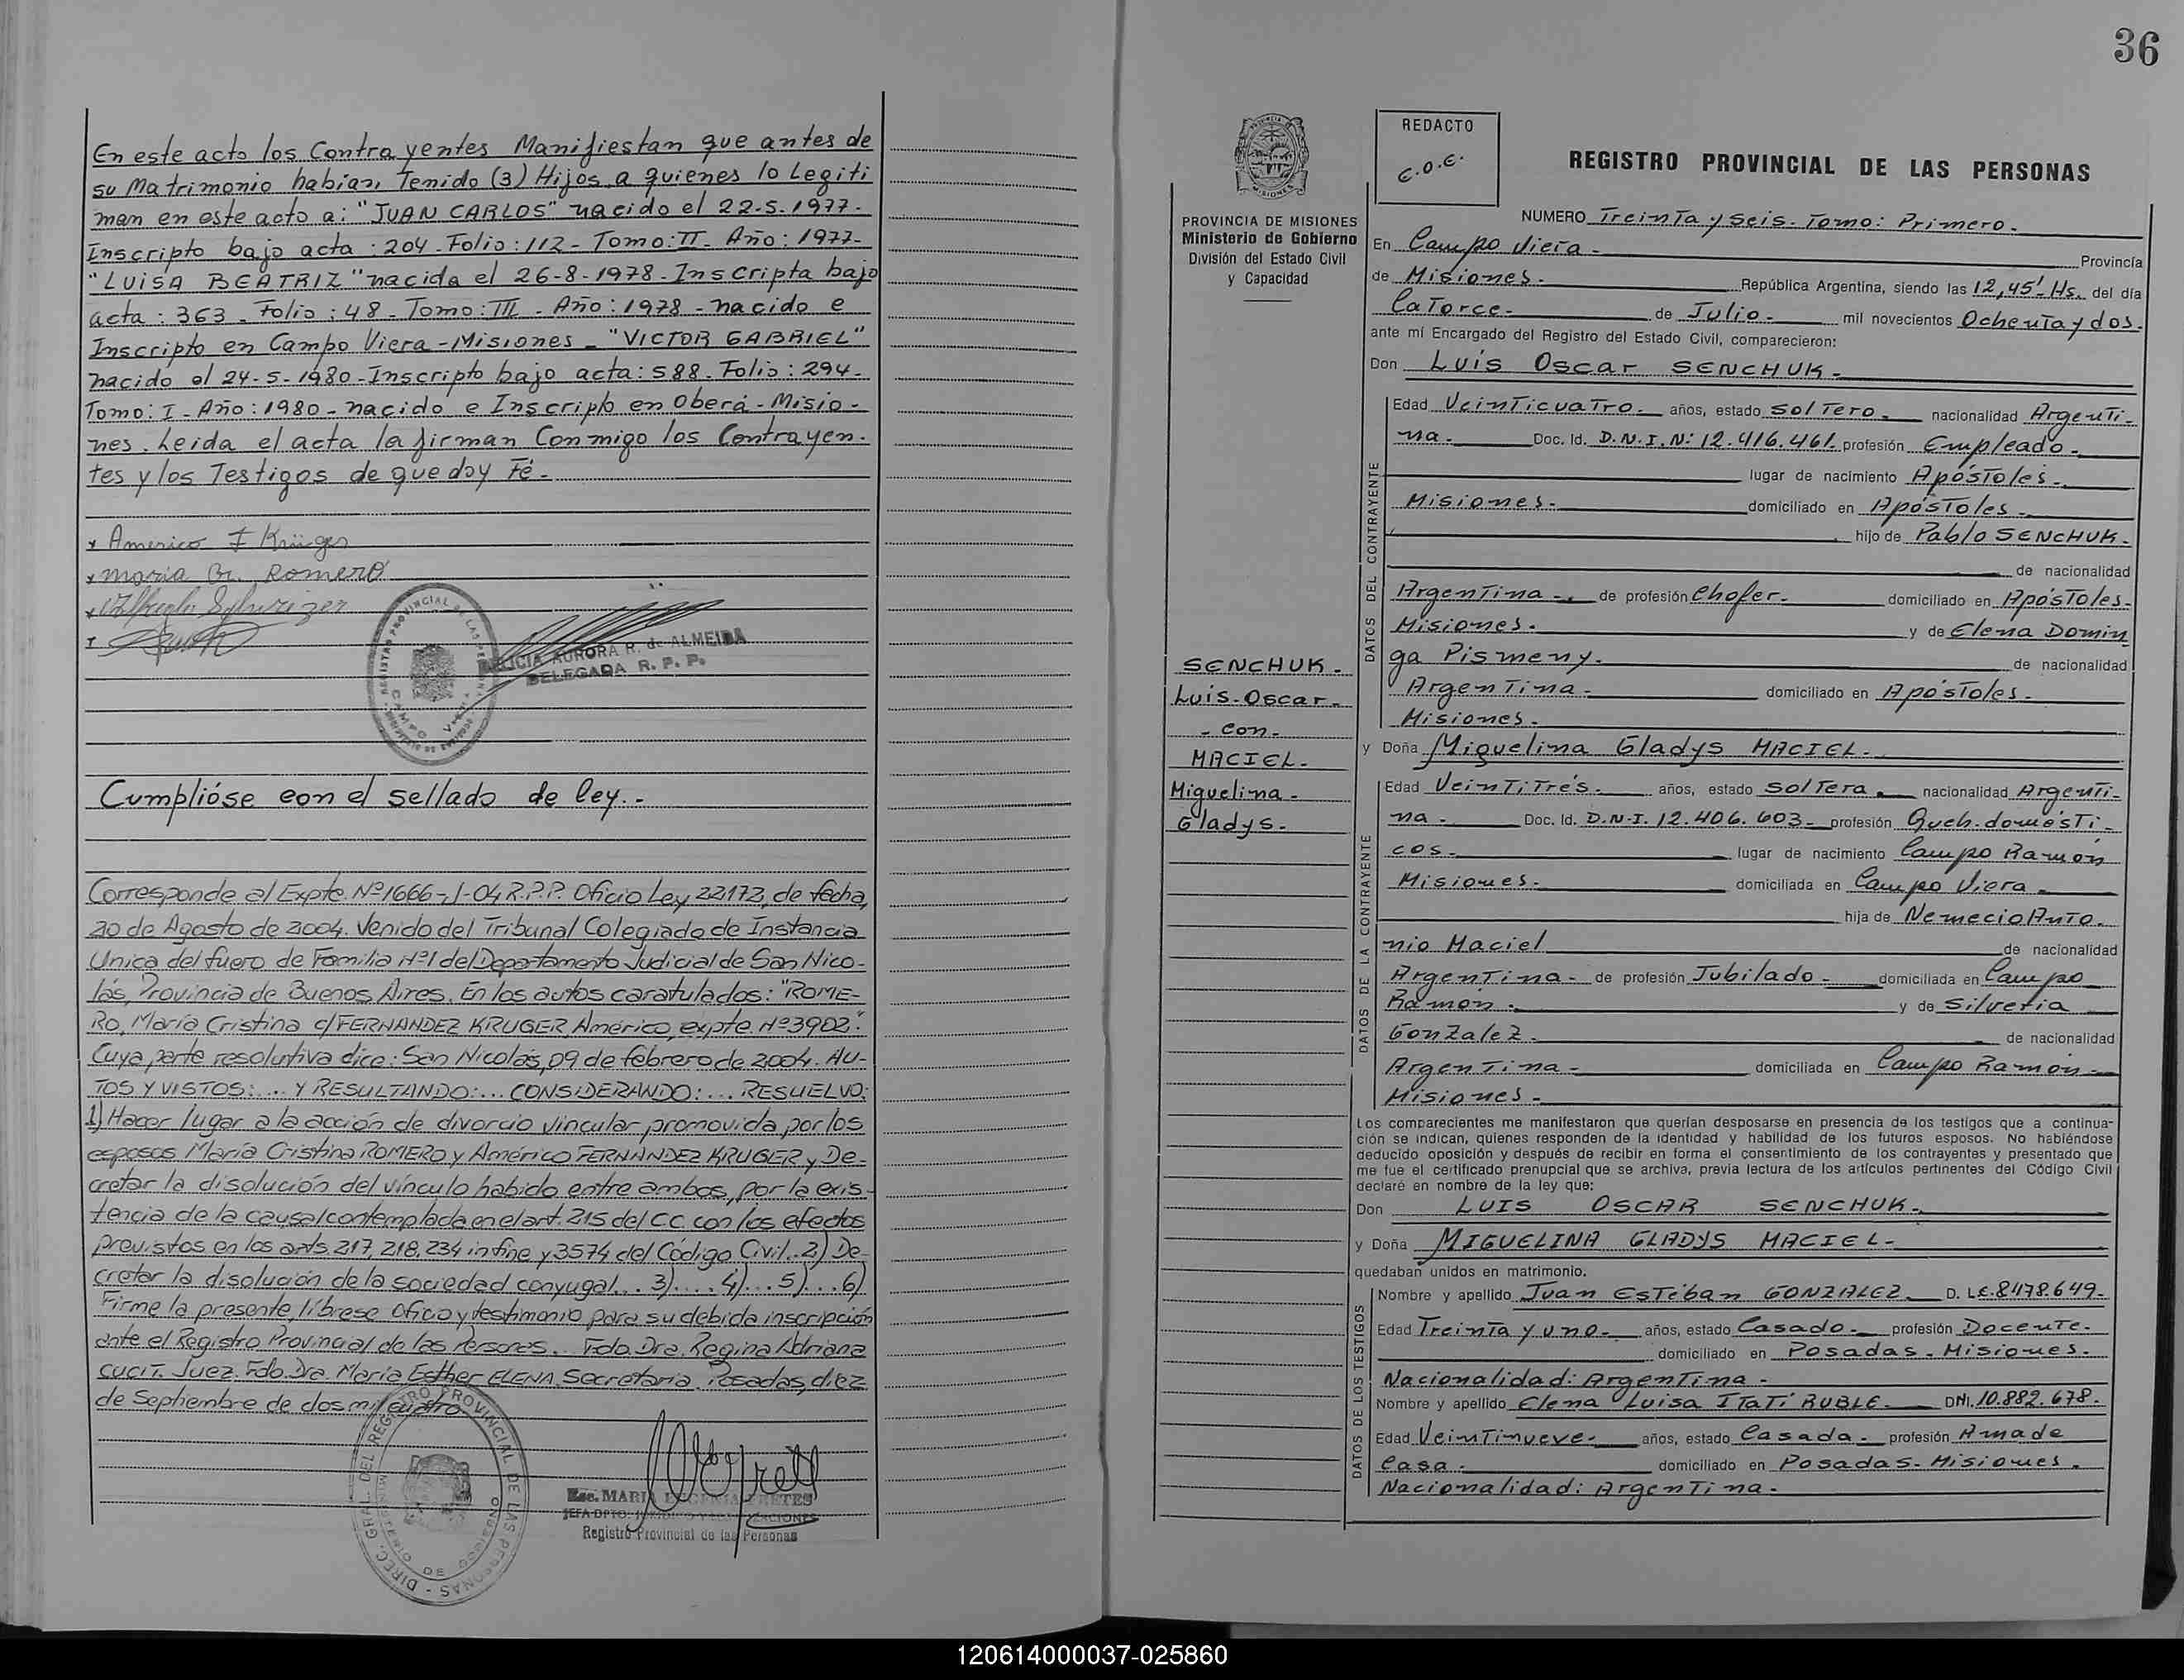 En este acto los Contrayentes Manifiestan que antes de
su Matrimonio habian Tenido (3) Hijos a quienes lo Legiti
man en este acto a: "JUAN CARLOS" nacido el 22-5-1977-
Inscripto bajo acta: 204-Folio: 112- Tomo: II- Año: 1977-
"LUISA BEATRIZ" nacida el 26-8-1978-Inscripta bajo
acta: 363- Folio: 48- Tomo: III- Año: 1978- nacido e
Inscripto en Campo Viera-Misiones- "VICTOR GABRIEL"
nacido el 24-5-1980-Inscripto bajo acta: 588. Folio: 294-
Tomo: I-Año: 1980- nacido e Inscripto en Oberá-Misio-
nes. Leida el acta la firman Conmigo los Contrayen-
tes y los Testigos de que doy Fé-
x Americo F Krüger
x maria Cr. Romero
CAMPO VIERA
FELICIA AURORA R. de ALMEIDA
DELEGADA R. P. P.
Cumplióse con el sellado de ley.-
Corresponde al Expte. Nº1666-J-04 R.P.P. Oficio Ley 22172, de fecha,
20 de Agosto de 2004. Venido del Tribunal Colegiado de Instancia
Unica del fuero de Familia Nº1 del Departamento Judicial de San Nico-
lás, Provincia de Buenos Aires. En los autos caratulados: "ROME-
RO, María Cristina c/FERNANDEZ KRUGER, Américo, expte. Nº3902".
Cuya parte resolutiva dice: San Nicolás, 09 de febrero de 2004. AU-
TOS Y VISTOS:... Y RESULTANDO:... CONSIDERANDO:... RESUELVO:
1) Hacer lugar a la acción de divorcio vincular promovida por los
esposos María Cristina ROMERO y Américo FERNANDEZ KRUGER y De-
cretar la disolución del vínculo habido entre ambos, por la exis-
tencia de la causal contemplada en el art. 215 del C.C. con los efectos
previstos en los arts. 217, 218, 234 in fine y 3574 del Código Civil. 2) De-
cretar la disolución de la sociedad conyugal... 3).... 4)... 5)... 6)
Firme la presente, líbrese oficio y testimonio para su debida inscripción
ante el Registro Provincial de las Personas... Fdo. Dra. Regina Adriana
CUCIT. Juez. Fdo. Dra. María Esther ELENA. Secretaria. Posadas, diez
de Septiembre de dos mil cuatro
DIREC. GRAL. DEL REGISTRO PROVINCIAL DE LAS PERSONAS
Esc. MARIA EUGENIA FRETES
Registro Provincial de las Personas
36
REDACTO
C.O.E.
REGISTRO PROVINCIAL DE LAS PERSONAS
PROVINCIA DE MISIONES
Ministerio de Gobierno
División del Estado Civil
y Capacidad
NUMERO Treinta y Seis- Tomo: Primero-
En Campo Viera- Provincia
de Misiones- República Argentina, siendo las 12,45' Hs. del día
Catorce- de Julio- mil novecientos Ochenta y dos-
ante mí Encargado del Registro del Estado Civil, comparecieron:
Don Luis Oscar SENCHUK-
DATOS DEL CONTRAYENTE
Edad Veinticuatro- años, estado Soltero- nacionalidad Argenti-
na- Doc. Id. D.N.I. Nº 12.416.461 profesión Empleado-
lugar de nacimiento Apóstoles-
Misiones- domiciliado en Apóstoles-
hijo de Pablo SENCHUK-
de nacionalidad
Argentina- de profesión Chofer- domiciliado en Apóstoles-
Misiones- y de Elena Domin
ga Pismeny- de nacionalidad
Argentina- domiciliado en Apóstoles-
Misiones-
SENCHUK-
Luis-Oscar-
- con-
MACIEL-
Miguelina-
Gladys-
y Doña Miguelina Gladys MACIEL-
DATOS DE LA CONTRAYENTE
Edad Veintitrés- años, estado Soltera- nacionalidad Argenti-
na- Doc. Id. D.N.I. 12.406.603- profesión Queh. domésti-
cos- lugar de nacimiento Campo Ramón
Misiones- domiciliada en Campo Viera-
hija de Nemecio Anto-
nio Maciel de nacionalidad
Argentina- de profesión Jubilado- domiciliada en Campo
Ramón- y de Silveria
Gonzalez- de nacionalidad
Argentina- domiciliada en Campo Ramón-
Misiones-
Los comparecientes me manifestaron que querían desposarse en presencia de los testigos que a continua-
ción se indican, quienes responden de la identidad y habilidad de los futuros esposos. No habiéndose
deducido oposición y después de recibir en forma el consentimiento de los contrayentes y presentado que
me fue el certificado prenupcial que se archiva, previa lectura de los artículos pertinentes del Código Civil
declaré en nombre de la ley que:
Don LUIS OSCAR SENCHUK-
y Doña MIGUELINA GLADYS MACIEL-
quedaban unidos en matrimonio.
DATOS DE LOS TESTIGOS
Nombre y apellido Juan Estéban GONZALEZ- D. LE. 8.478.649-
Edad Treinta y uno- años, estado Casado- profesión Docente-
domiciliado en Posadas- Misiones-
Nacionalidad: Argentina-
Nombre y apellido Elena Luisa ITATÍ RUBLE- DNI. 10.882.678-
Edad Veintinueve- años, estado Casada- profesión Ama de
Casa- domiciliado en Posadas- Misiones.
Nacionalidad: Argentina-
120614000037-025860